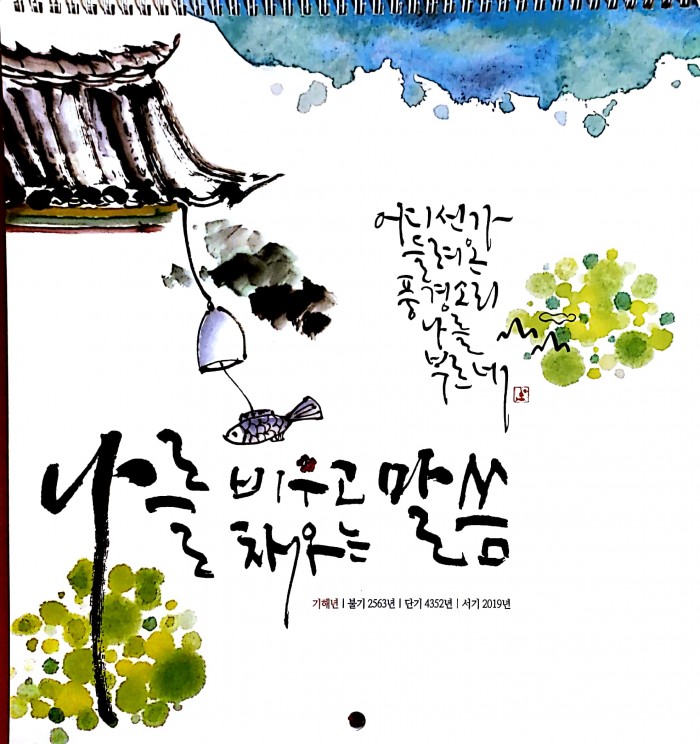 어디선가
들려온
풍경소리
나를
부르네
나를 비우고 채우는 말씀
기해년 | 불기 2563년 | 단기 4352년 | 서기 2019년